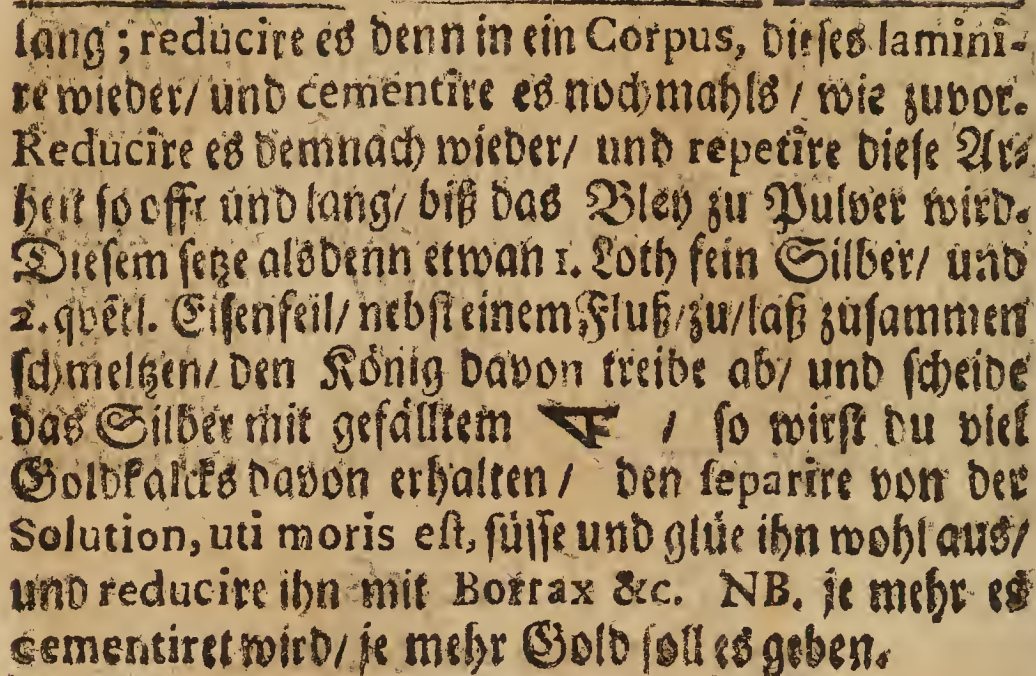 lang; reducire es denn in ein Corpus, dieses lamini-
re wieder/ und cementire es nochmahls / wie zuvor.
Reducire es demnach wieder/ und repetire diese Ar-
beit so offt und lang/ biß das Bley zu Pulver wird.
Diesem setze alsdenn etwan 1. Loth fein Silber/ und
2. qvêtl. Eisenfeil/ nebst einem Fluß/ zu/ laß zusammen
schmeltzen/ den König davon treibe ab/ und scheide
das Silber mit gefälltem 🜆 / so wirst du viel
Goldkalcks davon erhalten/ den separire von der
Solution, uti moris est, süsse und glüe ihn wohl aus/
und reducire ihn mit Borrax &c. NB. je mehr es
cementiret wird/ je mehr Gold soll es geben.